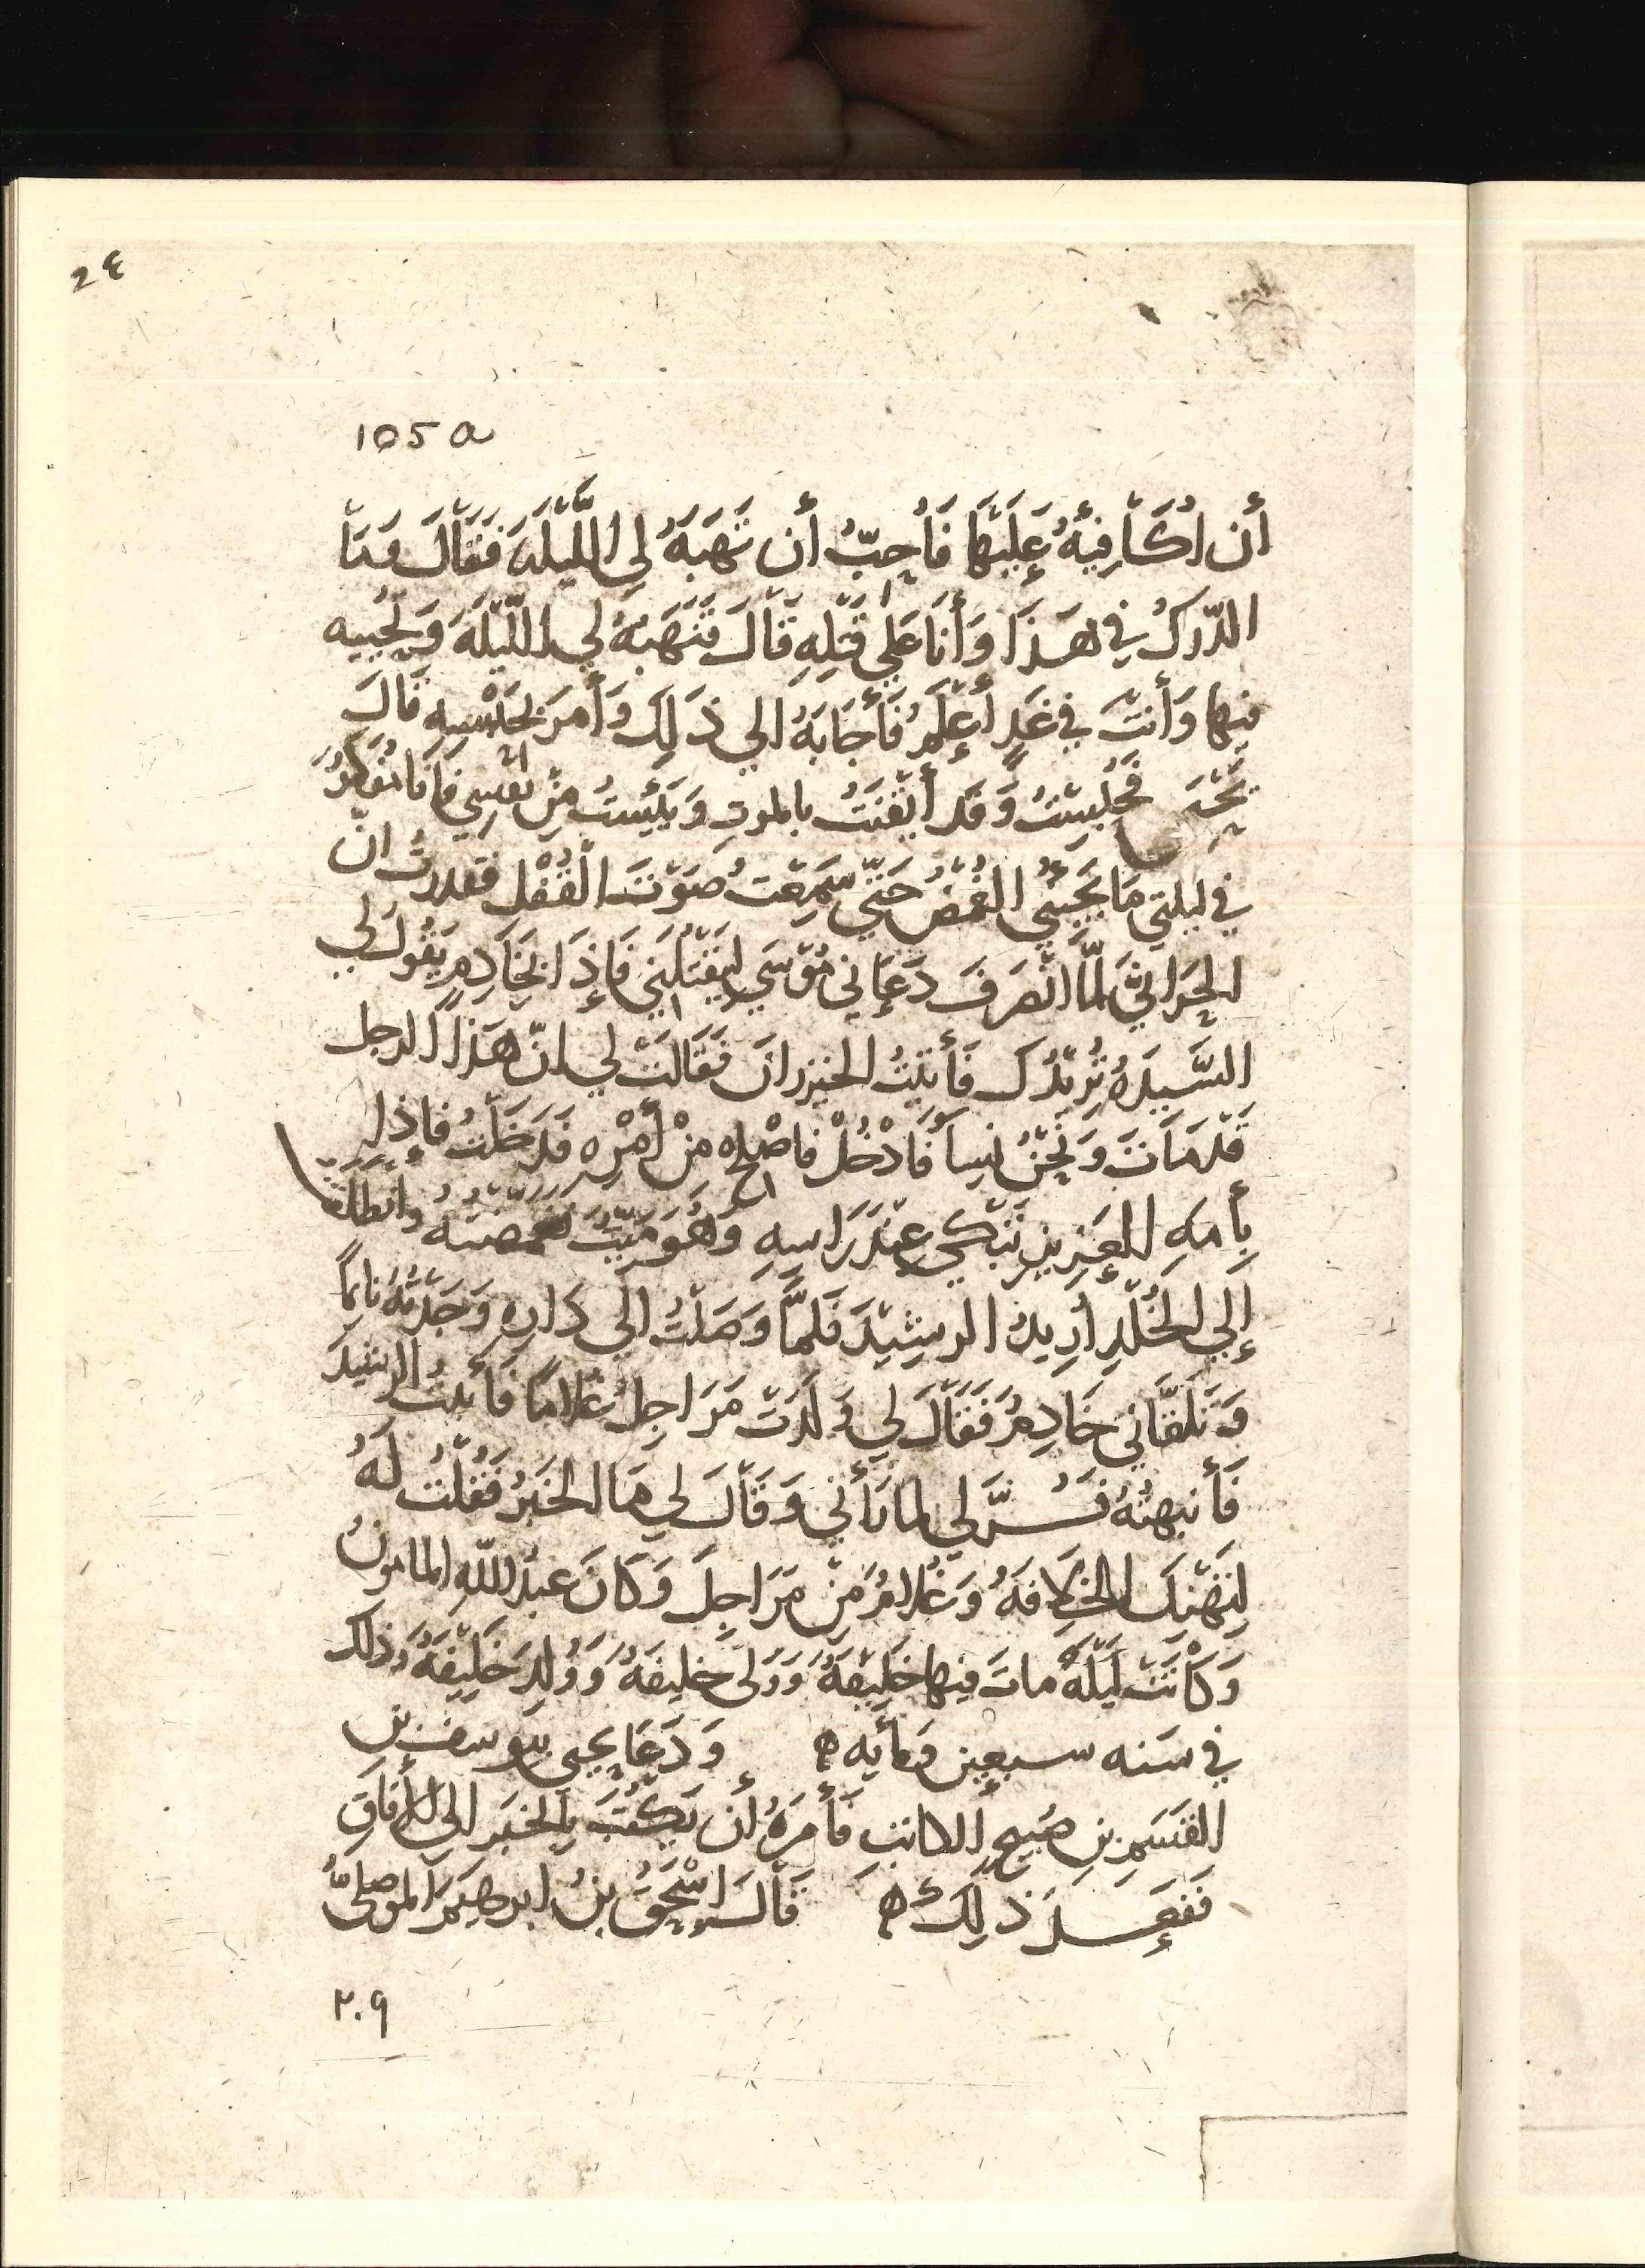 24
105 a
أن اُكَافِيَهُ عَلَيْهَا فَأُحِبُّ أن تَهَبَهُ لي اللَّيْلَةَ فَقَالَ مَا
الدّرَكُ في هَذَا وَأنَا عَلي قَتْلِهِ قَالَ فَتَهَبُهُ لي اللّيْلَةَ وَتُجيبه
فيها وَأنْتَ في غَدٍ أعْلَمُ فَأجَابَهُ الي ذَلِكَ وَأمَرَ بحَبْسِهِ قَالَ
يَحْيَى فَحُبِسْتُ وَقَد أيْقَنْتُ بالموتِ وَيَئِسْتُ مِنْ نَفْسِي فَأنَا مُفَكِّرٌ
في ليلتي مَا يَجِيئُني الغُمْضُ حَتّي سَمِعْتُ صَوْتَ الْقُفْل فقدرتُ انّ
الحَرّانيَّ لمّا انْصَرَفَ دَعَاني مُوْسَي لِيَقْتُلَنِي فَإِذَا الخَادِمِ يَقُولُ لي
السَّيدَهُ تُرِيْدُكَ فَأتيْتُ الخيزرانَ فَقَالَتْ لي انّ هَذا الرجل
قَدْ مَاتَ وَنَحْنُ نِسآ فَادْخُلْ فاصْلِح مِنْ أمْرِه فَدَخَلْتُ فإذا
بِأمَهِ العَزيز تَبْكي عِنْدَ رَاسِهِ وَهُوَ مَيّتٌ فغمّضتُه وانطلَقْتُ
إلي الخُلْدِ أرِيدُ الرشِيْدَ فَلمَّا وَصَلْتُ الي دَارِهِ وَجَدْتُهُ نَايمًا
وَتَلقَّاني خَادِمٌ فَقَالَ لي وَلَدَتْ مَرَاجِلُ غُلامًا فَأتيتُ الرشيدَ
فَأنبهتُهُ فَسُرَّ لي لما رَأني وَقَالَ لي مَا الخَبَرُ فَقُلْتُ لَهُ
لِتَهْنِكَ الخِلافَهُ وَغُلامٌ مِنْ مَرَاجِلَ وَكَانَ عَبْدَ اللهِ المامونُ
وَكَانَتْ لَيْلَهً ماتَ فيها خَليْفَهٌ وَوَلى خليفَهٌ وَوُلِدَ خَلِيْفَهٌ وذلك
في سَنه سبعين ومأيه ه وَدَعَا يحيى بيوسف بن
القسَمِ بنِ صَبيحٍ الكاتبِ فَأمَرَهُ أن يَكْتُبَ بالخبَر الي الأفَاقِ
فَفَعَـلَ ذَلِكَ ه قَالَ إسْحَقُ بنُ ابرهيمَ الموصليُّ
٢٠٩